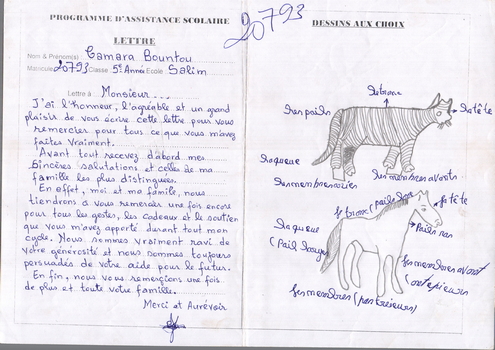 PROGRAMME D'ASSISTANCE SCOLAIRE
LETTRE
Nom & Prénom(s) Camara Bountou
Matricule 20793 Classe 5e Année Ecole Salim
Lettre à : Monsieur...
J'ai l'honneur, l'agréable et un grand
plaisir de vous écrire cette lettre pour vous
remercier pour tous ce que vous m'avez
faites vraiment.
Avant tout recevez d'abord mes
sincères salutations et celles de ma
famille les plus distinguées.
En effet, moi et ma famile, nous
tiendrons à vous remercier une fois encore
pour tous les gestes, les cadeaux et le soutien
que vous m'avez apporté durant tout mon
cycle. Nous sommes vraiment ravi de
votre générosité et nous sommes toujours
persuadés de votre aide pour le futur.
En fin, nous vous remerçions une fois
de plus et toute votre famille.
Merci et Aurévoir
20793
DESSINS AUX CHOIX
le tronc
les poils
la tête
la queue
les membres
les membres
le tronc
la tête
la queue
Poils ras
les membres
les membres